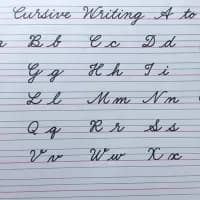 Cursive Writing A to
a B b C c D d
G g H h I i
L l M m N n
Q q R r S s
V v W w X x